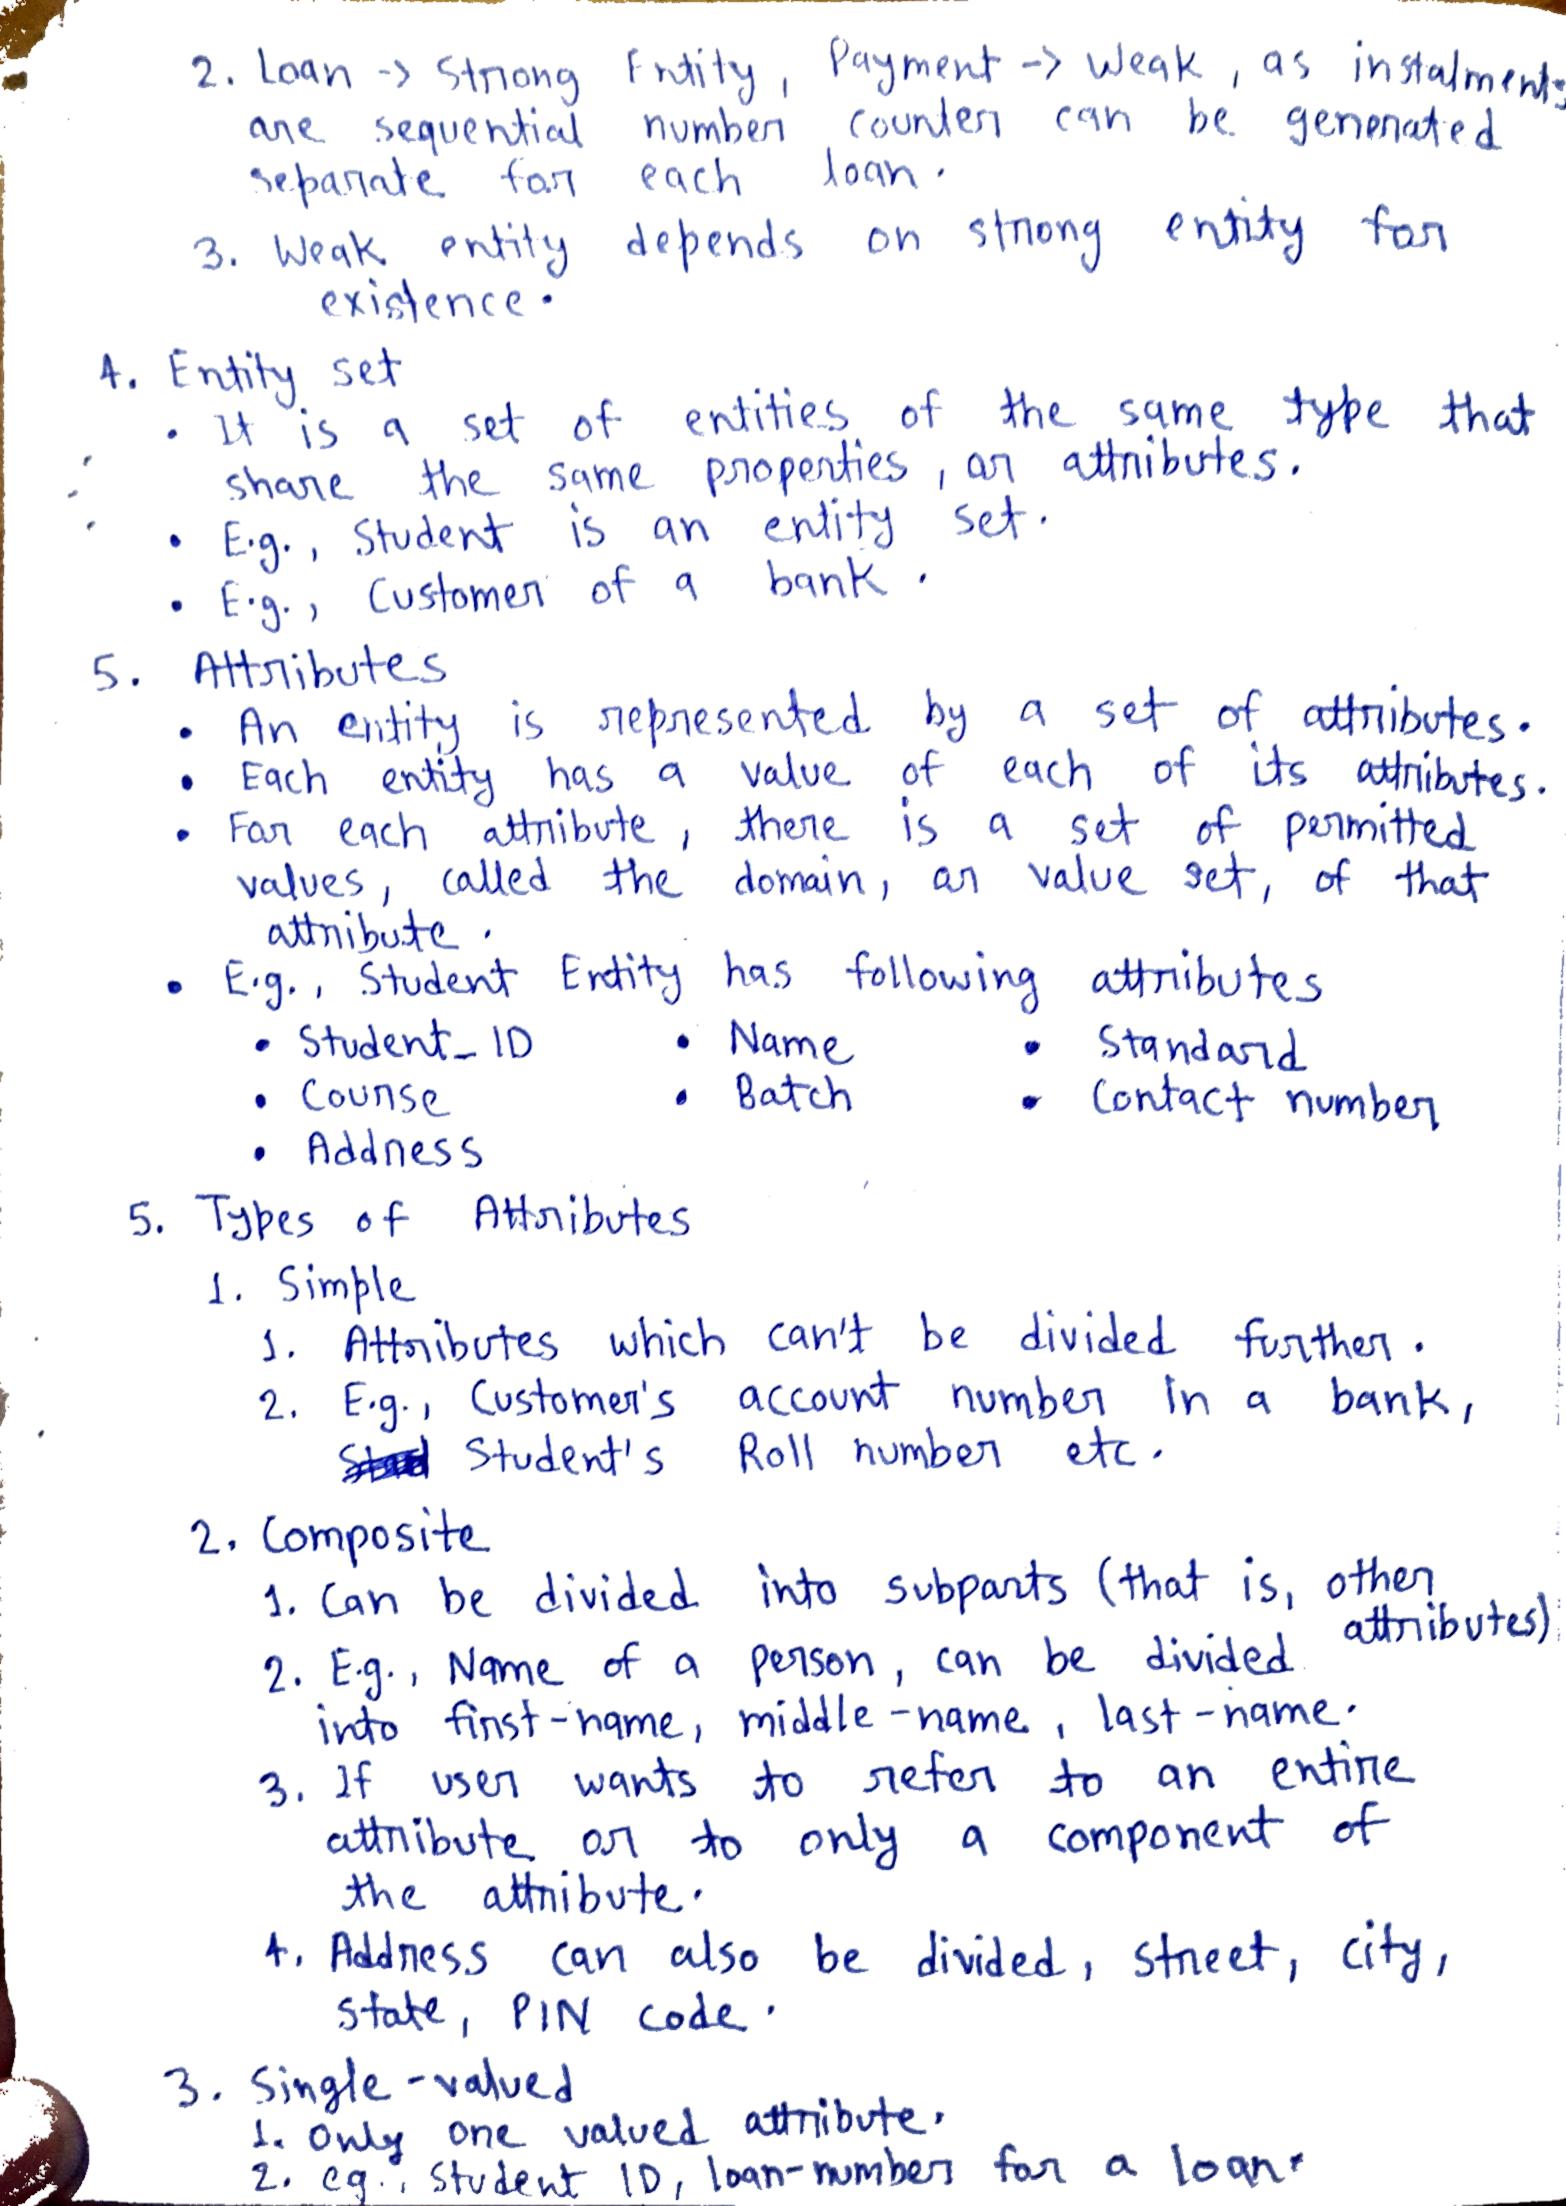 2. Loan -> Strong Entity, Payment -> Weak, as instalments
are sequential number counter can be generated
separate for each loan.
3. Weak entity depends on strong entity for
existence.
4. Entity set
• It is a set of entities of the same type that
share the same properties, or attributes.
• E.g., Student is an entity set.
• E.g., Customer of a bank.
5. Attributes
• An entity is represented by a set of attributes.
• Each entity has a value of each of its attributes.
• For each attribute, there is a set of permitted
values, called the domain, or value set, of that
attribute.
• E.g., Student Entity has following attributes
• Student_ID • Name • Standard
• Course • Batch • Contact number
• Address
5. Types of Attributes
1. Simple
1. Attributes which can't be divided further.
2. E.g., Customer's account number in a bank,
Student's Roll number etc.
2. Composite
1. Can be divided into subparts (that is, other
attributes)
2. E.g., Name of a person, can be divided
into first-name, middle-name, last-name.
3. If user wants to refer to an entire
attribute or to only a component of
the attribute.
4. Address can also be divided, street, city,
state, PIN code.
3. Single-valued
1. Only one valued attribute.
2. eg., Student ID, loan-number for a loan.